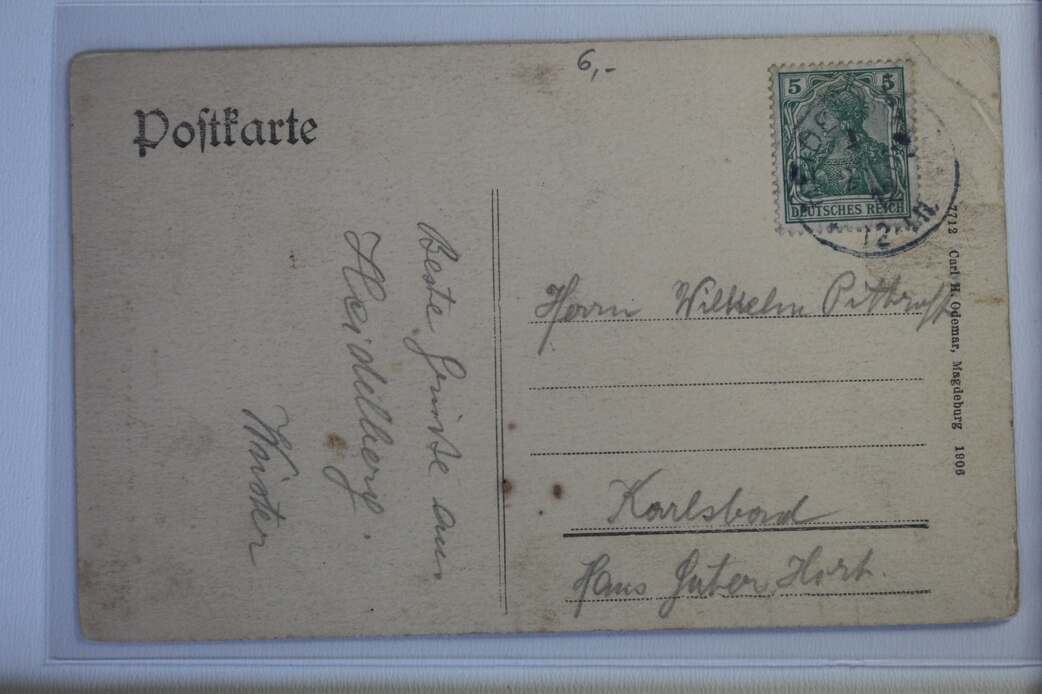 6,-
Postkarte
5 5
DEUTSCHES REICH
12
7712 Carl H. Odemar, Magdeburg 1906
Beste Grüsse aus
Heidelberg.
Herrn Wilhelm
Karlsbad
Haus Guter Hirt.